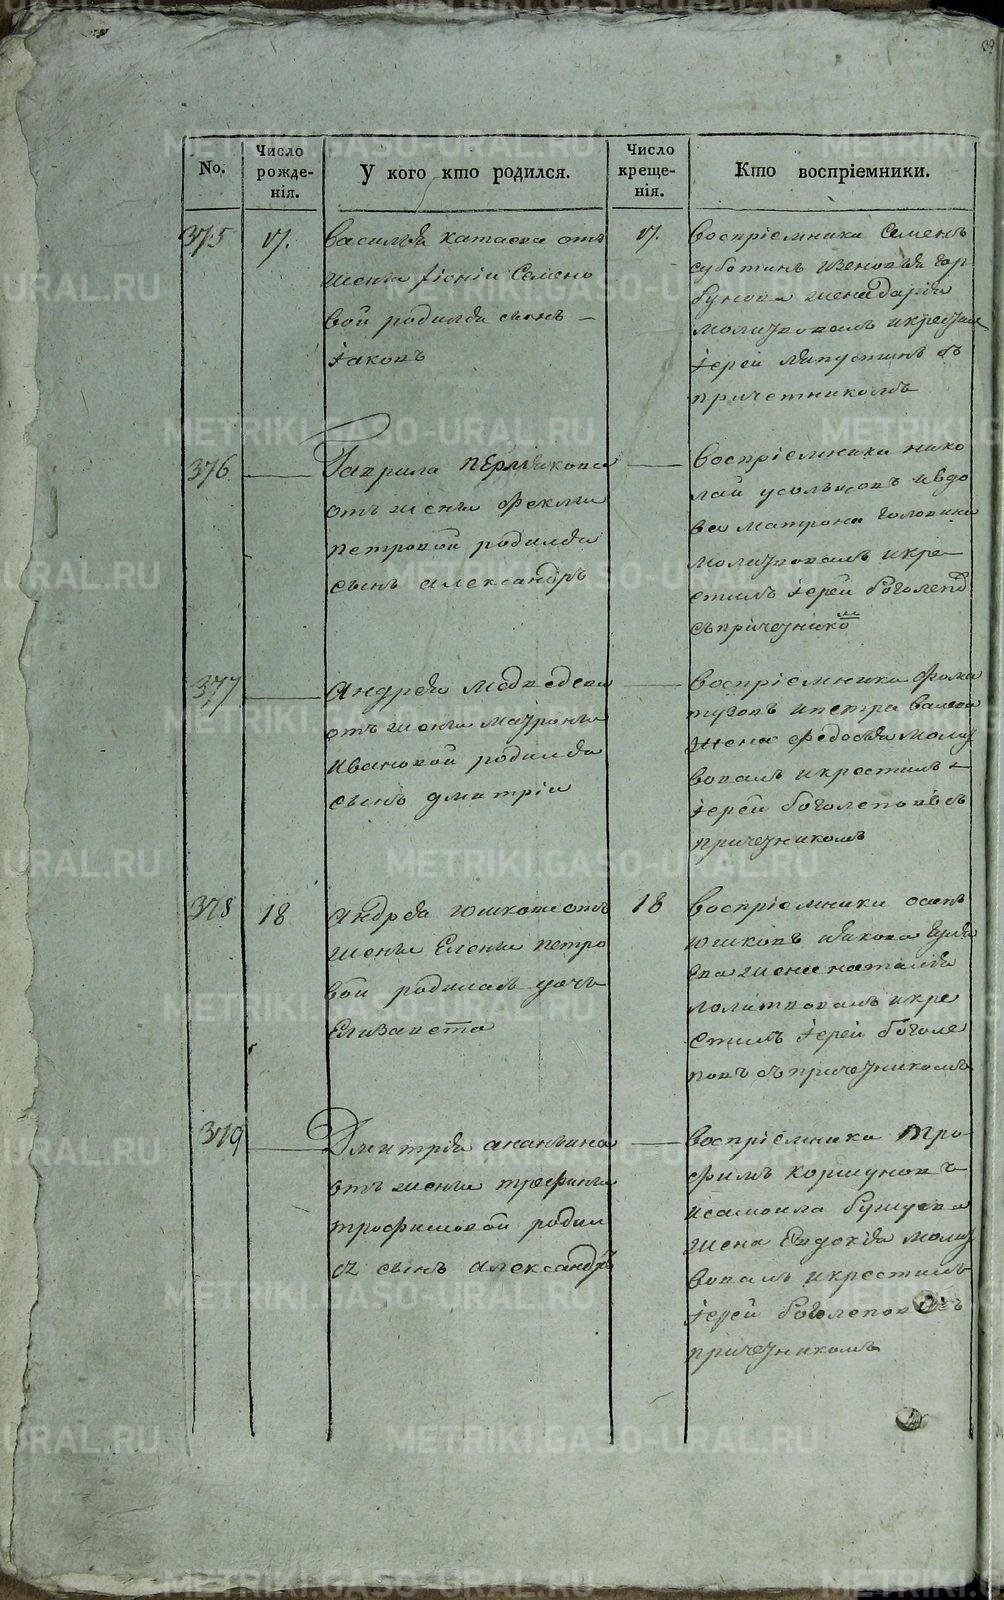 No.
Число рожде-нія.
У кого кто родился.
Число креще-нія.
Кто воспріемники.
375
17.
василья катаева отъ
жены Ксеніи Семено
вой родился сынъ
Іаковъ
17.
воспріемники Семенъ
суботинъ Зеновья гор
бунова жена дарія
молитвовалъ и крестилъ
Іерей съ
причетникомъ
376
Гаврила пермякова
отъ жены Феклы
петровой родился
сынъ александръ
воспріемники нико
лай усольцовъ и вдо
ва матрона головина
молитвовалъ и кре
стилъ Іерей боголепо
съ причетнико
377
андрея медведева
отъ жены матроны
ивановой родился
сынъ дмитріи
воспріемники фома
тузовъ и петра
жена федосья молит
вовалъ и крестилъ
Іерей боголеповъ съ
причетникомъ
378
18
андрея юшкова отъ
жены Елены петро
вой родилась дочь
Елизавета
18
воспріемники осипъ
юшковъ иякова
ва жена наталья
молитвовалъ и кре
стилъ Іерей боголе
повъ съ причетникомъ
379
Дмитрія ананьина
отъ жены трефины
трофимовой родил
ся сынъ александръ
воспріемники тро
фимъ коршуновъ
исамоила бушуева
жена Евдокія молит
вовалъ и крестилъ
Іерей боголеповъ съ
причетникомъ
METRIKI.GASO-URAL.RU